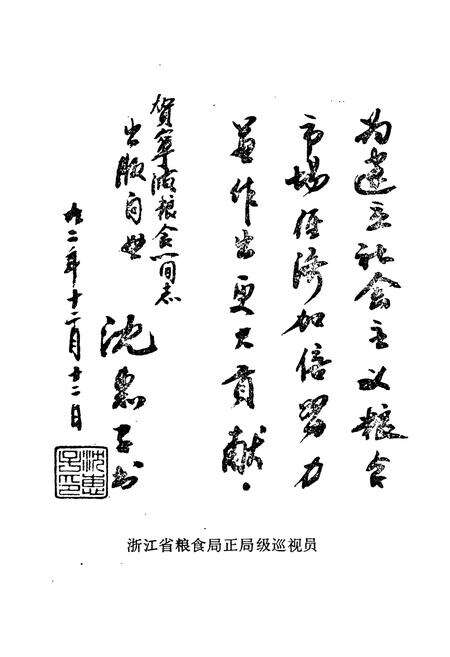 为建立社会主义粮食
市场经济加倍努力
并作出更大贡献。
贺宁粮食志
出版问世
沈惠书
九二年十二月十二日
沈惠印
浙江省粮食局正局级巡视员